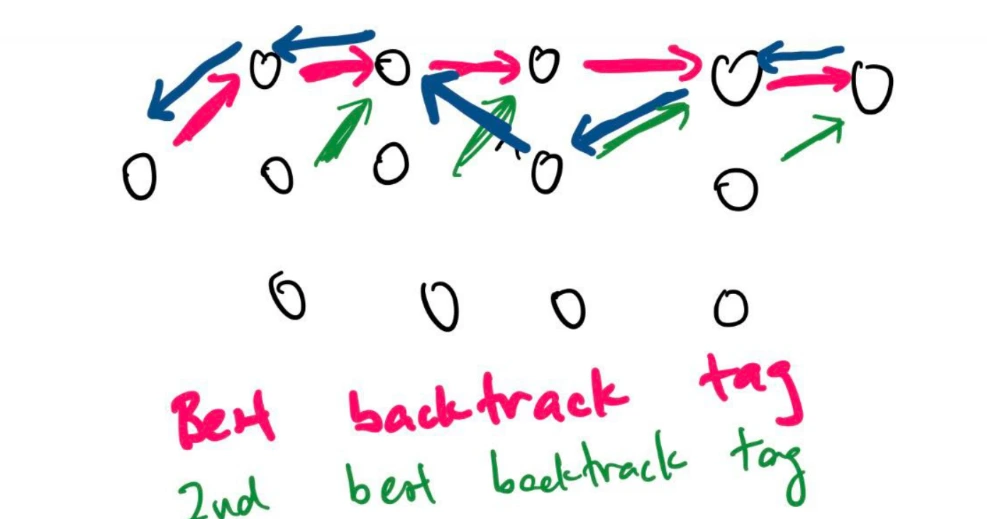 Best backtrack tag
2nd best backtrack tag